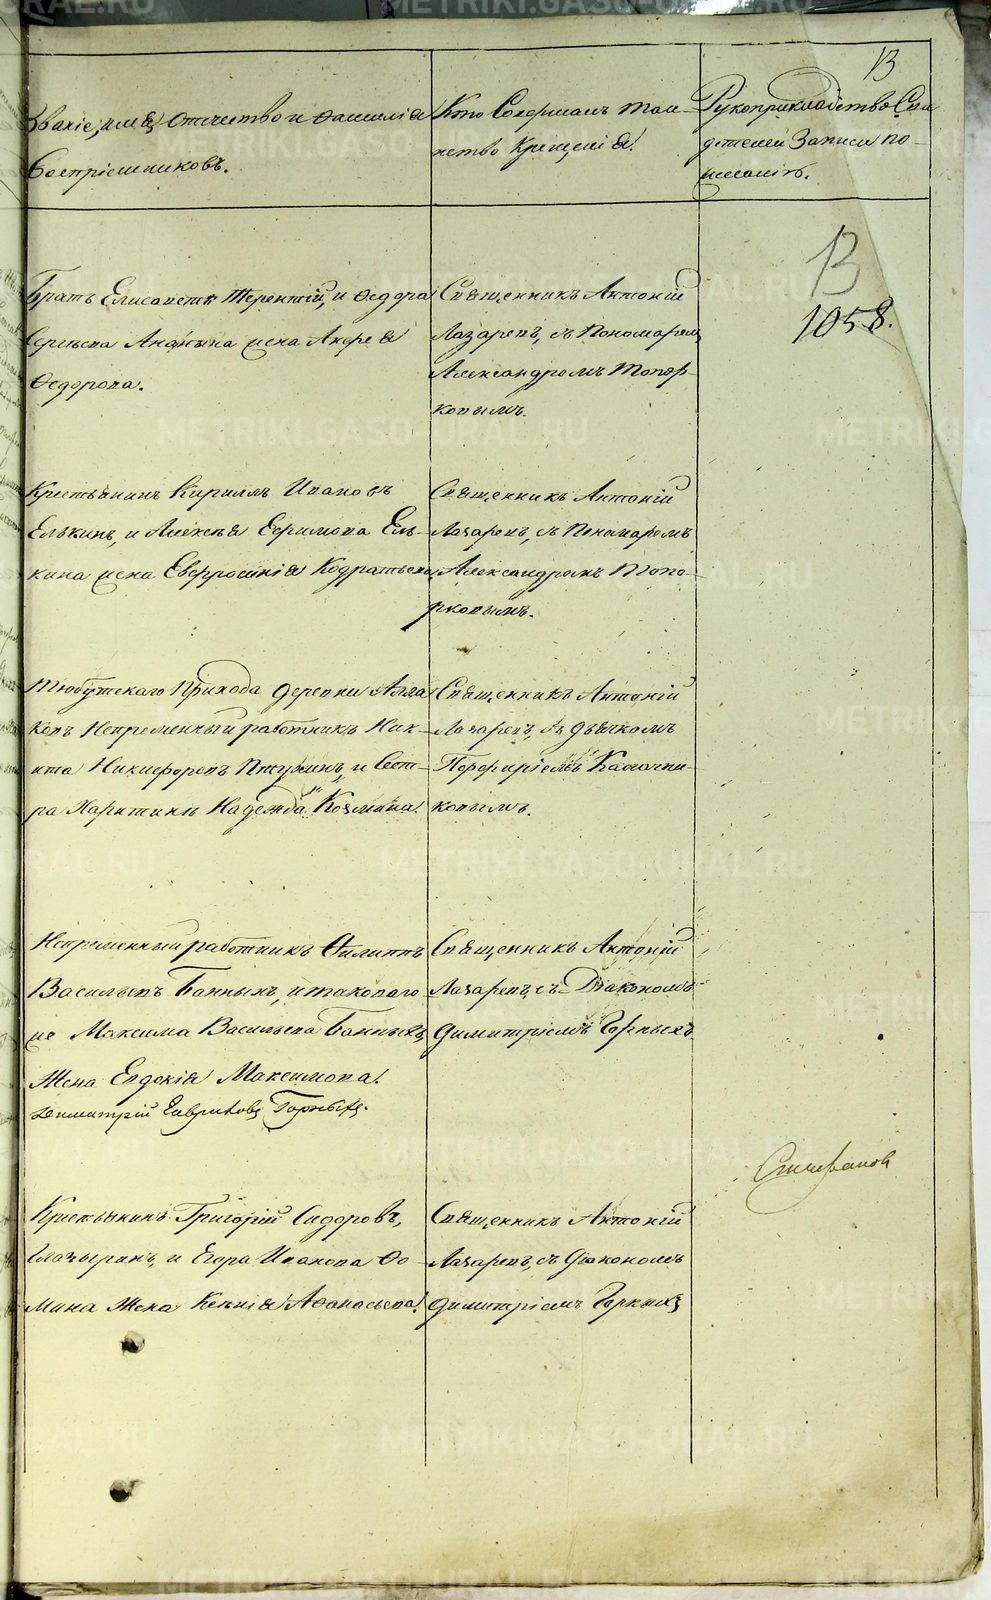 13
Званіе, имя, отечество и фамилія
воспріемниковъ.
Кто Совершалъ таи-
нство Крещенія.
Рукоприкладство Сви-
дѣтелей Записи по-
желанію.
13
1058.
Братъ Елисавета Терентій, и Ѳедора
Сергѣева Ананьина жена Анфея
Ѳедорова.
Священникъ Антоній
Лазаревъ, съ Пономаремъ
Александромъ Топор-
ковымъ.
Крестьянинъ Кириллъ Ивановъ
Елькинъ, и Алексѣя Ефимова Ель-
кина жена Евфросинія Кодратьева
Священникъ Антоній
Лазаревъ, съ Пономаромъ
Александромъ Топо-
рковымъ.
Тюбукскаго Прихода деревни Алла
Непременный работникъ Ник-
ита Никифоровъ и Сест-
ра Надежда Козмина.
Священникъ Антоній
Лазаревъ, съ дьячкомъ
Порфиріемъ Калачни-
ковымъ.
Непременный работникъ Филиппъ
Васильевъ Банныхъ, и таковаго
же Максима Васильева Банныхъ
Жена Евдокія Максимова.
Димитрій Гавриловъ Горныхъ.
Священникъ Антоній
Лазаревъ, съ Діакономъ
Димитріемъ Горныхъ
Стефановъ
Крестьянинъ Григорій Сидоровъ,
Глазыринъ, и Егора Иванова Ѳо-
мина Жена Ксенія Аѳонасьева.
Священникъ Антоній
Лазаревъ, съ Діакономъ
Димитріемъ Горныхъ
METRIKI.GASO-URAL.RU